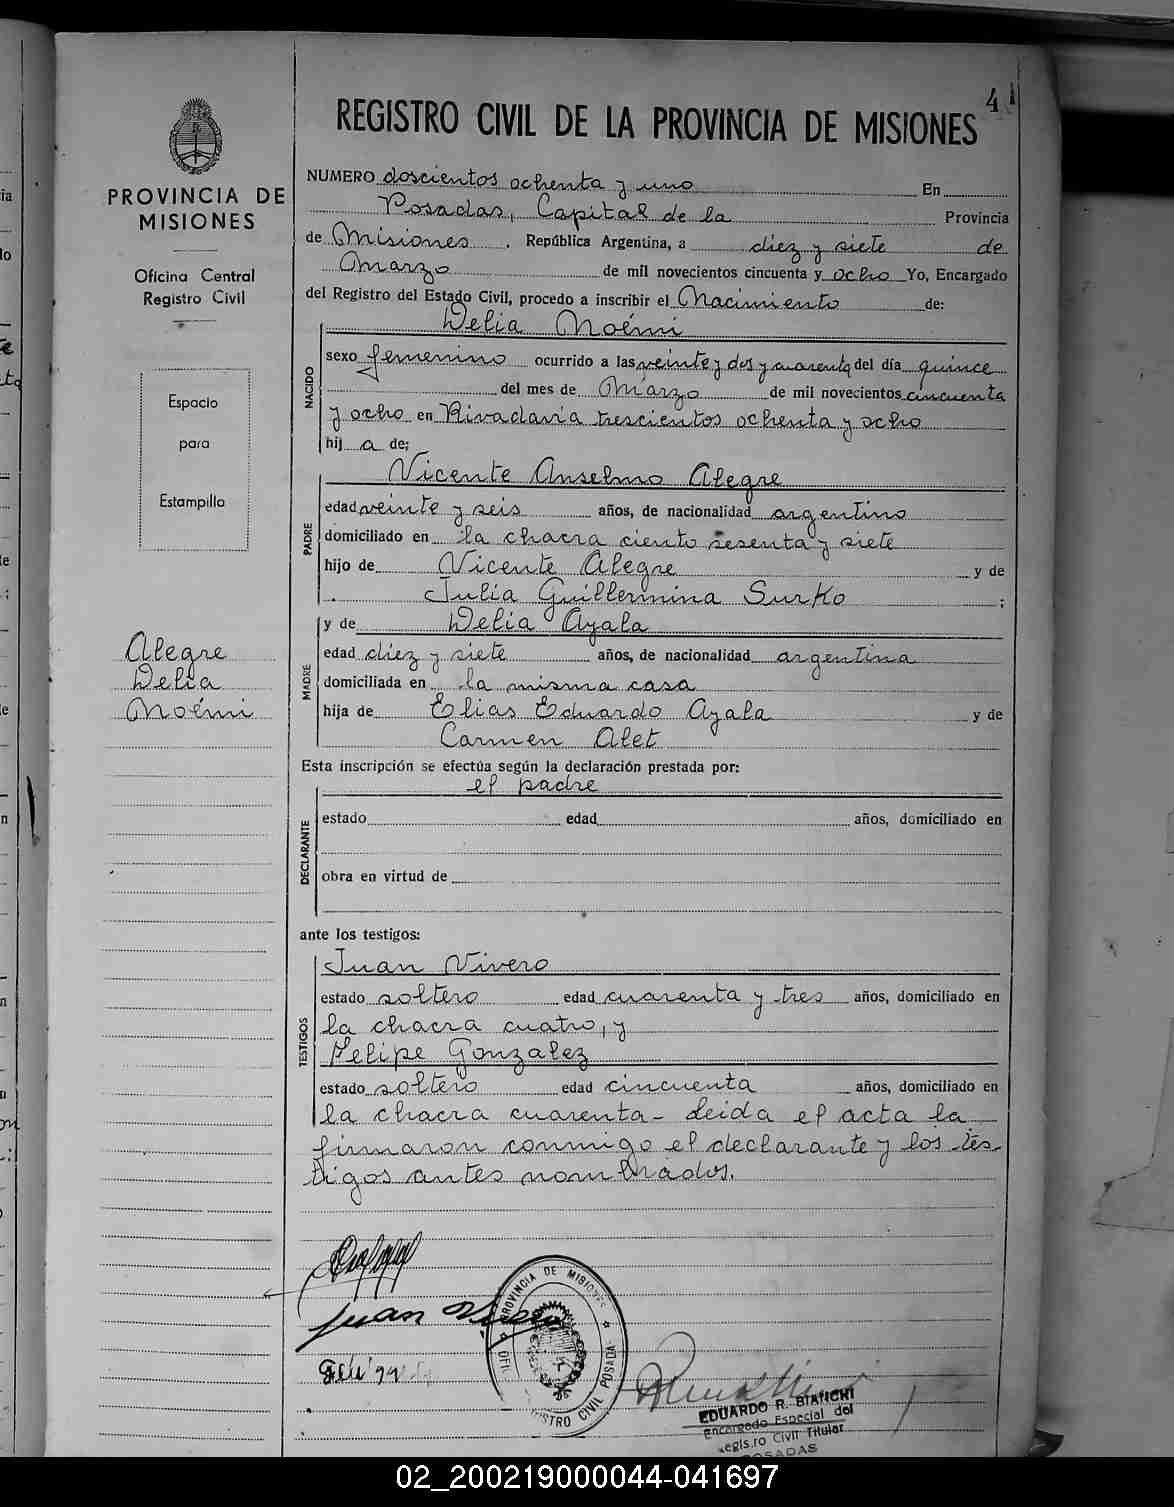 4
REGISTRO CIVIL DE LA PROVINCIA DE MISIONES
PROVINCIA DE
MISIONES
Oficina Central
Registro Civil
Espacio
para
Estampilla
Alegre
Delia
Noémi
NUMERO doscientos ochenta y uno En
Posadas, Capital de la Provincia
de Misiones . República Argentina, a diez y siete de
Marzo de mil novecientos cincuenta y ocho Yo, Encargado
del Registro del Estado Civil, procedo a inscribir el Nacimiento de:
Delia Noémi
NACIDO
sexo femenino ocurrido a las veinte y dos y cuarenta del día quince
del mes de Marzo de mil novecientos cincuenta
y ocho en Rivadavia trescientos ochenta y ocho
hij a de:
Vicente Anselmo Alegre
PADRE
edad veinte y seis años, de nacionalidad argentino
domiciliado en la chacra ciento sesenta y siete
hijo de Vicente Alegre y de
Julia Guillermina Surko ;
y de Delia Ayala
MADRE
edad diez y siete años, de nacionalidad argentina
domiciliada en la misma casa
hija de Elias Eduardo Ayala y de
Carmen Alet
Esta inscripción se efectúa según la declaración prestada por:
el padre
DECLARANTE
estado edad años, domiciliado en
obra en virtud de
ante los testigos:
TESTIGOS
Juan Vivero
estado soltero edad cuarenta y tres años, domiciliado en
la chacra cuatro, y
Felipe Gonzalez
estado soltero edad cincuenta años, domiciliado en
la chacra cuarenta - Leida el acta la
firmaron conmigo el declarante y los tes-
tigos antes nombrados.
Juan Vivero
PROVINCIA DE MISIONES
REGISTRO CIVIL POSADAS
EDUARDO R. BIANCHI
Encargado Especial del
Registro Civil Titular
POSADAS
02_200219000044-041697